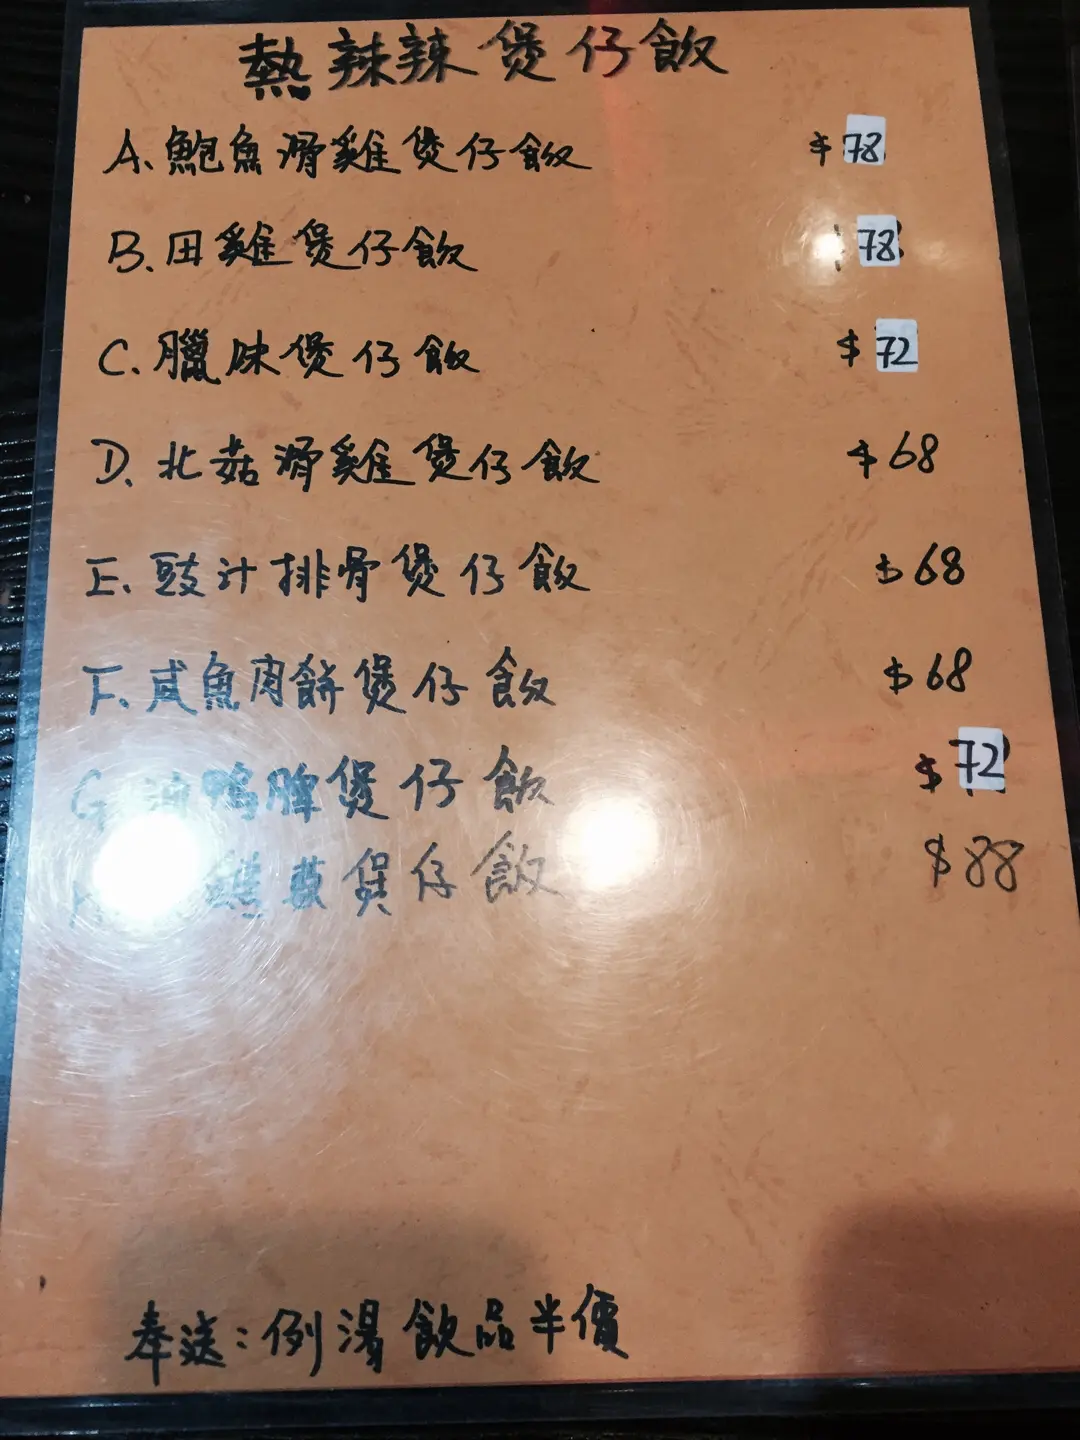 熱辣辣煲仔飯
A. 鮑魚滑雞煲仔飯 $78
B. 田雞煲仔飯 78
C. 臘味煲仔飯 $72
D. 北菇滑雞煲仔飯 $68
E. 豉汁排骨煲仔飯 $68
F. 咸魚肉餅煲仔飯 $68
G. 油鴨脾煲仔飯 $72
煲仔飯 $88
奉送：例湯 飲品半價